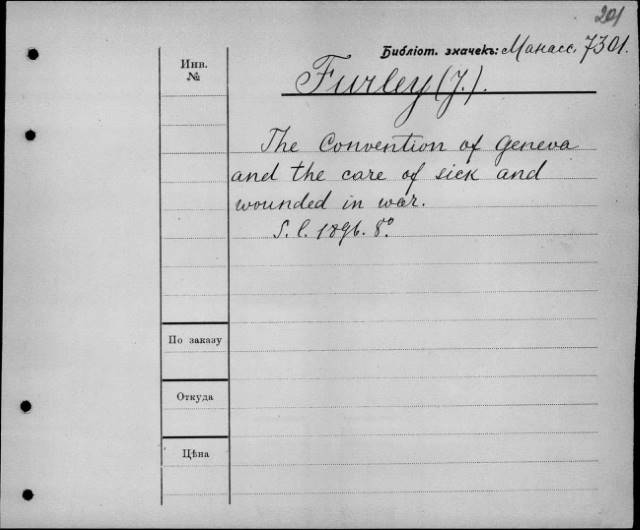 201
Библіот. значекъ: Манасс. 7301.
Инв.
№
Furley (J.).
The Convention of Geneva
and the care of sick and
wounded in war.
S. l. 1896. 8º.
По заказу
Откуда
Цѣна